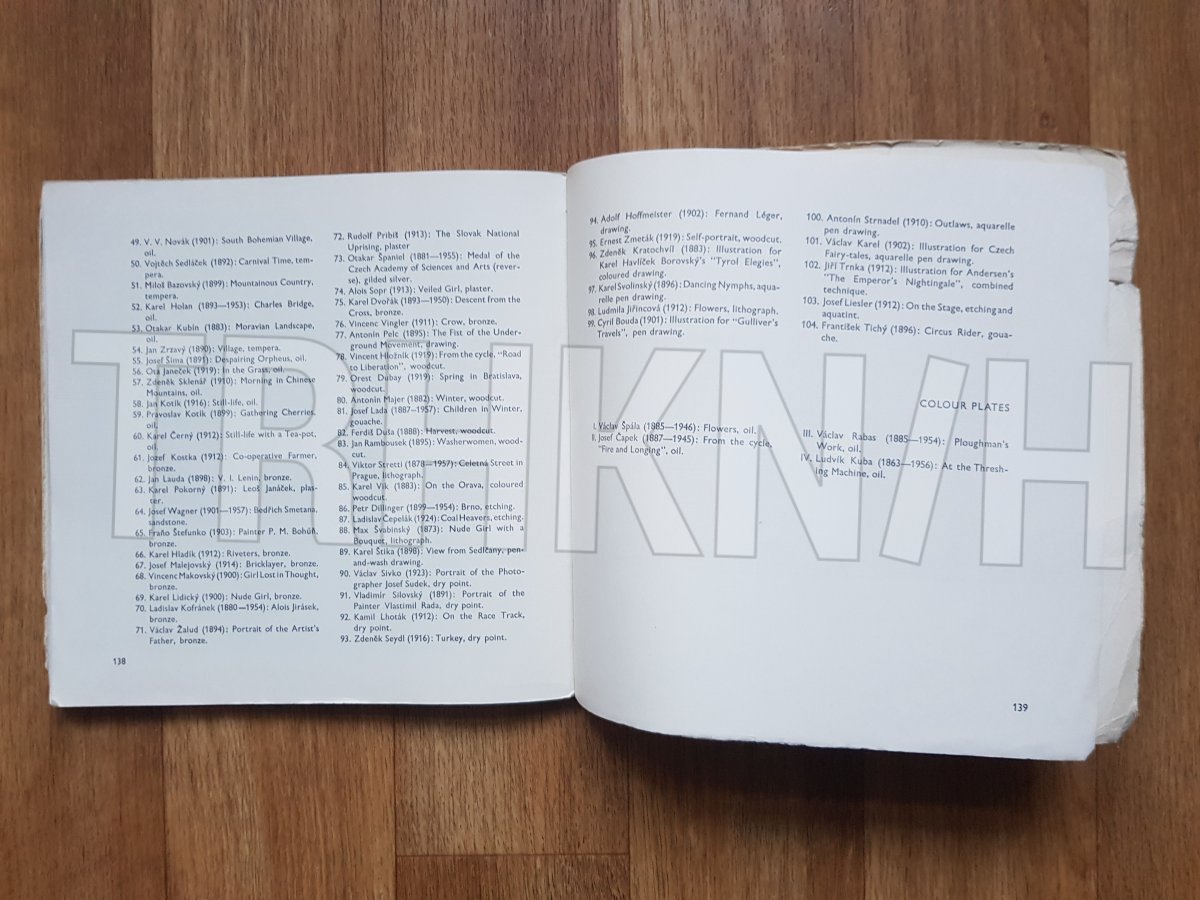 49. V. V. Novák (1901): South Bohemian Village,
oil.
50. Vojtěch Sedláček (1892): Carnival Time, tem-
pera.
51. Miloš Bazovský (1899): Mountainous Country,
tempera.
52. Karel Holan (1893—1953): Charles Bridge,
oil.
53. Otakar Kubín (1883): Moravian Landscape,
oil.
54. Jan Zrzavý (1890): Village, tempera.
55. Josef Šíma (1891): Despairing Orpheus, oil.
56. Ota Janeček (1919): In the Grass, oil.
57. Zdeněk Sklenář (1910): Morning in Chinese
Mountains, oil.
58. Jan Kotík (1916): Still-life, oil.
59. Pravoslav Kotík (1899): Gathering Cherries,
oil.
60. Karel Černý (1912): Still-life with a Tea-pot,
oil.
61. Jozef Kostka (1912): Co-operative Farmer,
bronze.
62. Jan Lauda (1898): V. I. Lenin, bronze.
63. Karel Pokorný (1891): Leoš Janáček, plas-
ter.
64. Josef Wagner (1901—1957): Bedřich Smetana,
sandstone.
65. Fraňo Štefunko (1903): Painter P. M. Bohúň,
bronze.
66. Karel Hladík (1912): Riveters, bronze.
67. Josef Malejovský (1914): Bricklayer, bronze.
68. Vincenc Makovský (1900): Girl Lost in Thought,
bronze.
69. Karel Lidický (1900): Nude Girl, bronze.
70. Ladislav Kofránek (1880—1954): Alois Jirásek,
bronze.
71. Václav Žalud (1894): Portrait of the Artist's
Father, bronze.
138
72. Rudolf Pribiš (1913): The Slovak National
Uprising, plaster
73. Otakar Španiel (1881—1955): Medal of the
Czech Academy of Sciences and Arts (rever-
se), gilded silver.
74. Alois Sopr (1913): Veiled Girl, plaster.
75. Karel Dvořák (1893—1950): Descent from the
Cross, bronze.
76. Vincenc Vingler (1911): Crow, bronze.
77. Antonín Pelc (1895): The Fist of the Under-
ground Movement, drawing.
78. Vincent Hložník (1919): From the cycle, "Road
to Liberation", woodcut.
79. Orest Dubay (1919): Spring in Bratislava,
woodcut.
80. Antonín Majer (1882): Winter, woodcut.
81. Josef Lada (1887–1957): Children in Winter,
gouache.
82. Ferdiš Duša (1888): Harvest, woodcut.
83. Jan Rambousek (1895): Washerwomen, wood-
cut.
84. Viktor Stretti (1878—1957): Celetná Street in
Prague, lithograph.
85. Karel Vik (1883): On the Orava, coloured
woodcut.
86. Petr Dillinger (1899—1954): Brno, etching.
87. Ladislav Čepelák (1924): Coal Heavers, etching.
88. Max Švabinský (1873): Nude Girl with a
Bouquet, lithograph.
89. Karel Štika (1898): View from Sedlčany, pen-
and-wash drawing.
90. Václav Sivko (1923): Portrait of the Photo-
grapher Josef Sudek, dry point.
91. Vladimír Silovský (1891): Portrait of the
Painter Vlastimil Rada, dry point.
92. Kamil Lhoták (1912): On the Race Track,
dry point.
93. Zdeněk Seydl (1916): Turkey, dry point.
94. Adolf Hoffmeister (1902): Fernand Léger,
drawing.
95. Ernest Zmeták (1919): Self-portrait, woodcut.
96. Zdeněk Kratochvíl (1883): Illustration for
Karel Havlíček Borovský's "Tyrol Elegies",
coloured drawing.
97. Karel Svolinský (1896): Dancing Nymphs, aqua-
relle pen drawing.
98. Ludmila Jiřincová (1912): Flowers, lithograph.
99. Cyril Bouda (1901): Illustration for "Gulliver's
Travels", pen drawing.
100. Antonín Strnadel (1910): Outlaws, aquarelle
pen drawing.
101. Václav Karel (1902): Illustration for Czech
Fairy-tales, aquarelle pen drawing.
102. Jiří Trnka (1912): Illustration for Andersen's
"The Emperor's Nightingale", combined
technique.
103. Josef Liesler (1912): On the Stage, etching and
aquatint.
104. František Tichý (1896): Circus Rider, goua-
che.
COLOUR PLATES
I. Václav Špála (1885—1946): Flowers, oil.
II. Josef Čapek (1887—1945): From the cycle,
"Fire and Longing", oil.
III. Václav Rabas (1885—1954): Ploughman's
Work, oil.
IV. Ludvík Kuba (1863—1956): At the Thresh-
ing Machine, oil.
139